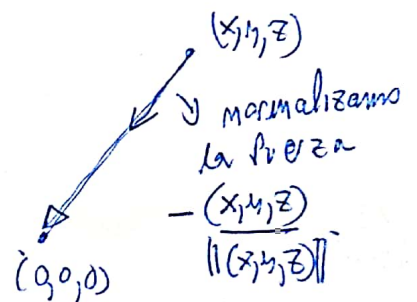 (x,y,z)
↘ normalizamos
la fuerza
- (x,y,z)
||(x,y,z)||
(0,0,0)